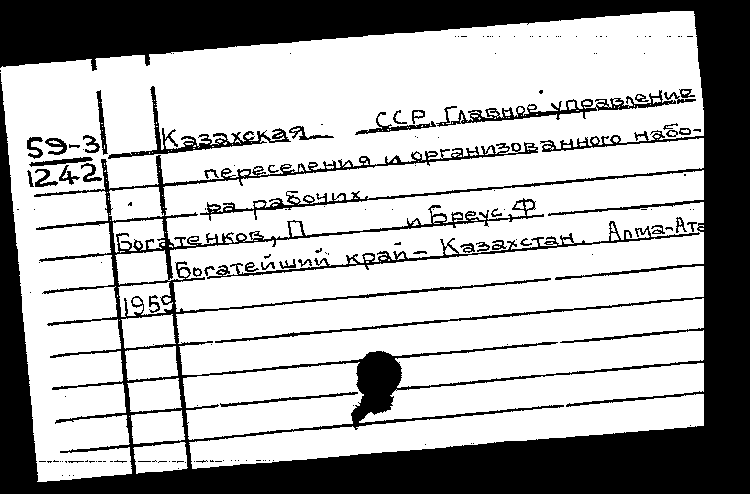 59-3 Казахская ССР. Главное управление
1242 переселения и организованного набо-
ра рабочих.
Богатенков, П и Бреус, Ф
Богатейший край - Казахстан. Алма-Ата
1959.